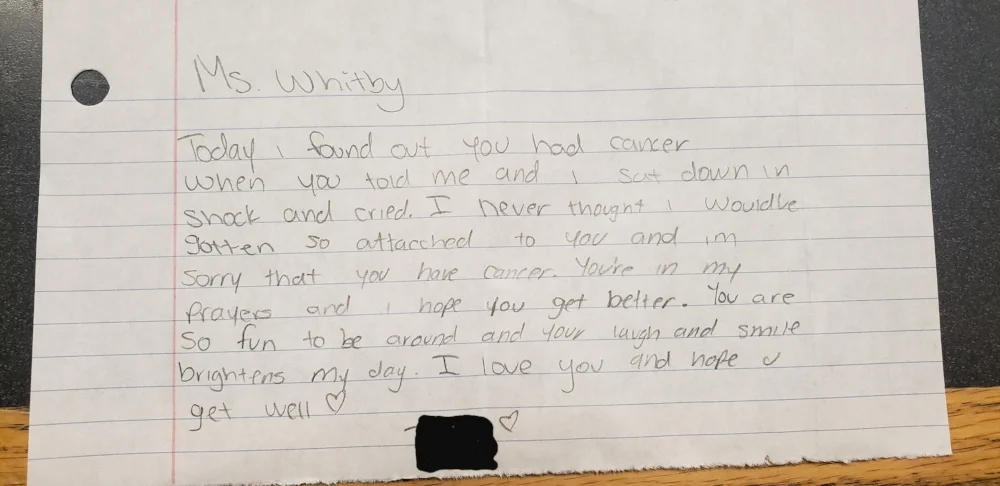 Ms. Whitby
Today i found out you had cancer
when you told me and i sat down in
shock and cried. I never thought i wouldve
gotten so attacched to you and im
sorry that you have cancer. You're in my
prayers and i hope you get better. You are
so fun to be around and your laugh and smile
brightens my day. I love you and hope u
get well ♡
♡